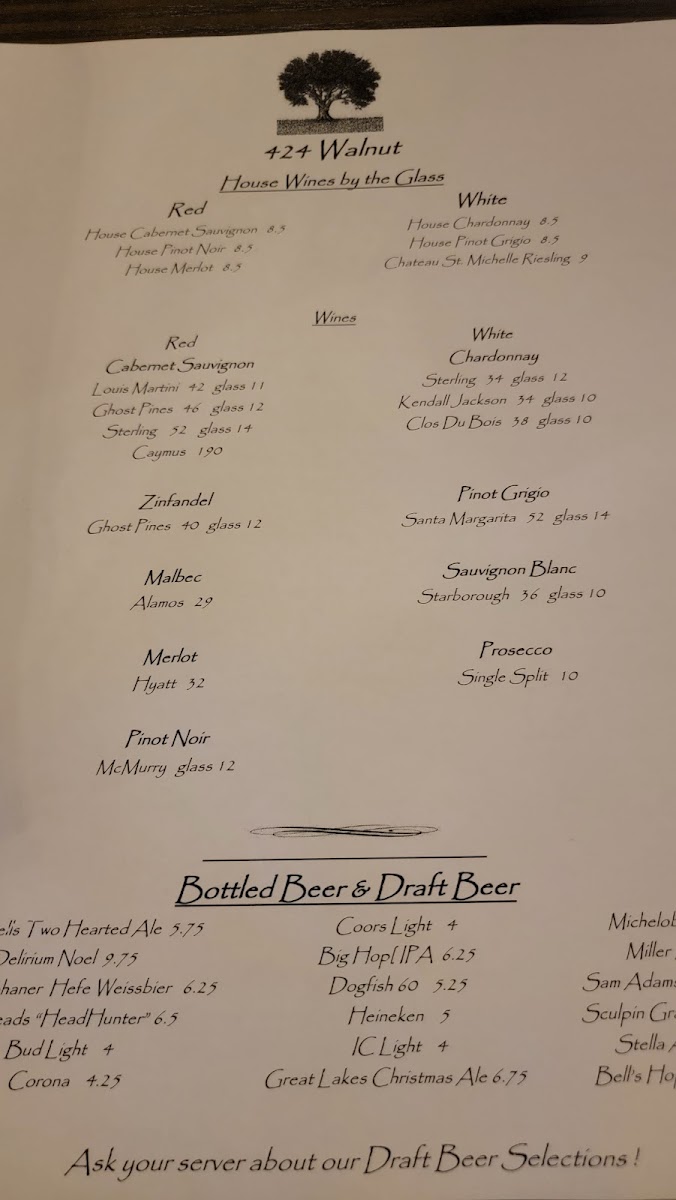 424 Walnut
House Wines by the Glass
Red
House Cabernet Sauvignon 8.5
House Pinot Noir 8.5
House Merlot 8.5
White
House Chardonnay 8.5
House Pinot Grigio 8.5
Chateau St. Michelle Riesling 9
Wines
Red
Cabernet Sauvignon
Louis Martini 42 glass 11
Ghost Pines 46 glass 12
Sterling 52 glass 14
Caymus 190
Zinfandel
Ghost Pines 40 glass 12
Malbec
Alamos 29
Merlot
Hyatt 32
Pinot Noir
McMurry glass 12
White
Chardonnay
Sterling 34 glass 12
Kendall Jackson 34 glass 10
Clos Du Bois 38 glass 10
Pinot Grigio
Santa Margarita 52 glass 14
Sauvignon Blanc
Starborough 36 glass 10
Prosecco
Single Split 10
Bottled Beer & Draft Beer
ell's Two Hearted Ale 5.75
Delirium Noel 9.75
haner Hefe Weissbier 6.25
eads "HeadHunter" 6.5
Bud Light 4
Corona 4.25
Coors Light 4
Big Hop[IPA 6.25
Dogfish 60 5.25
Heineken 5
IC Light 4
Great Lakes Christmas Ale 6.75
Michelob
Miller
Sam Adams
Sculpin Gra
Stella A
Bell's Hop
Ask your server about our Draft Beer Selections !